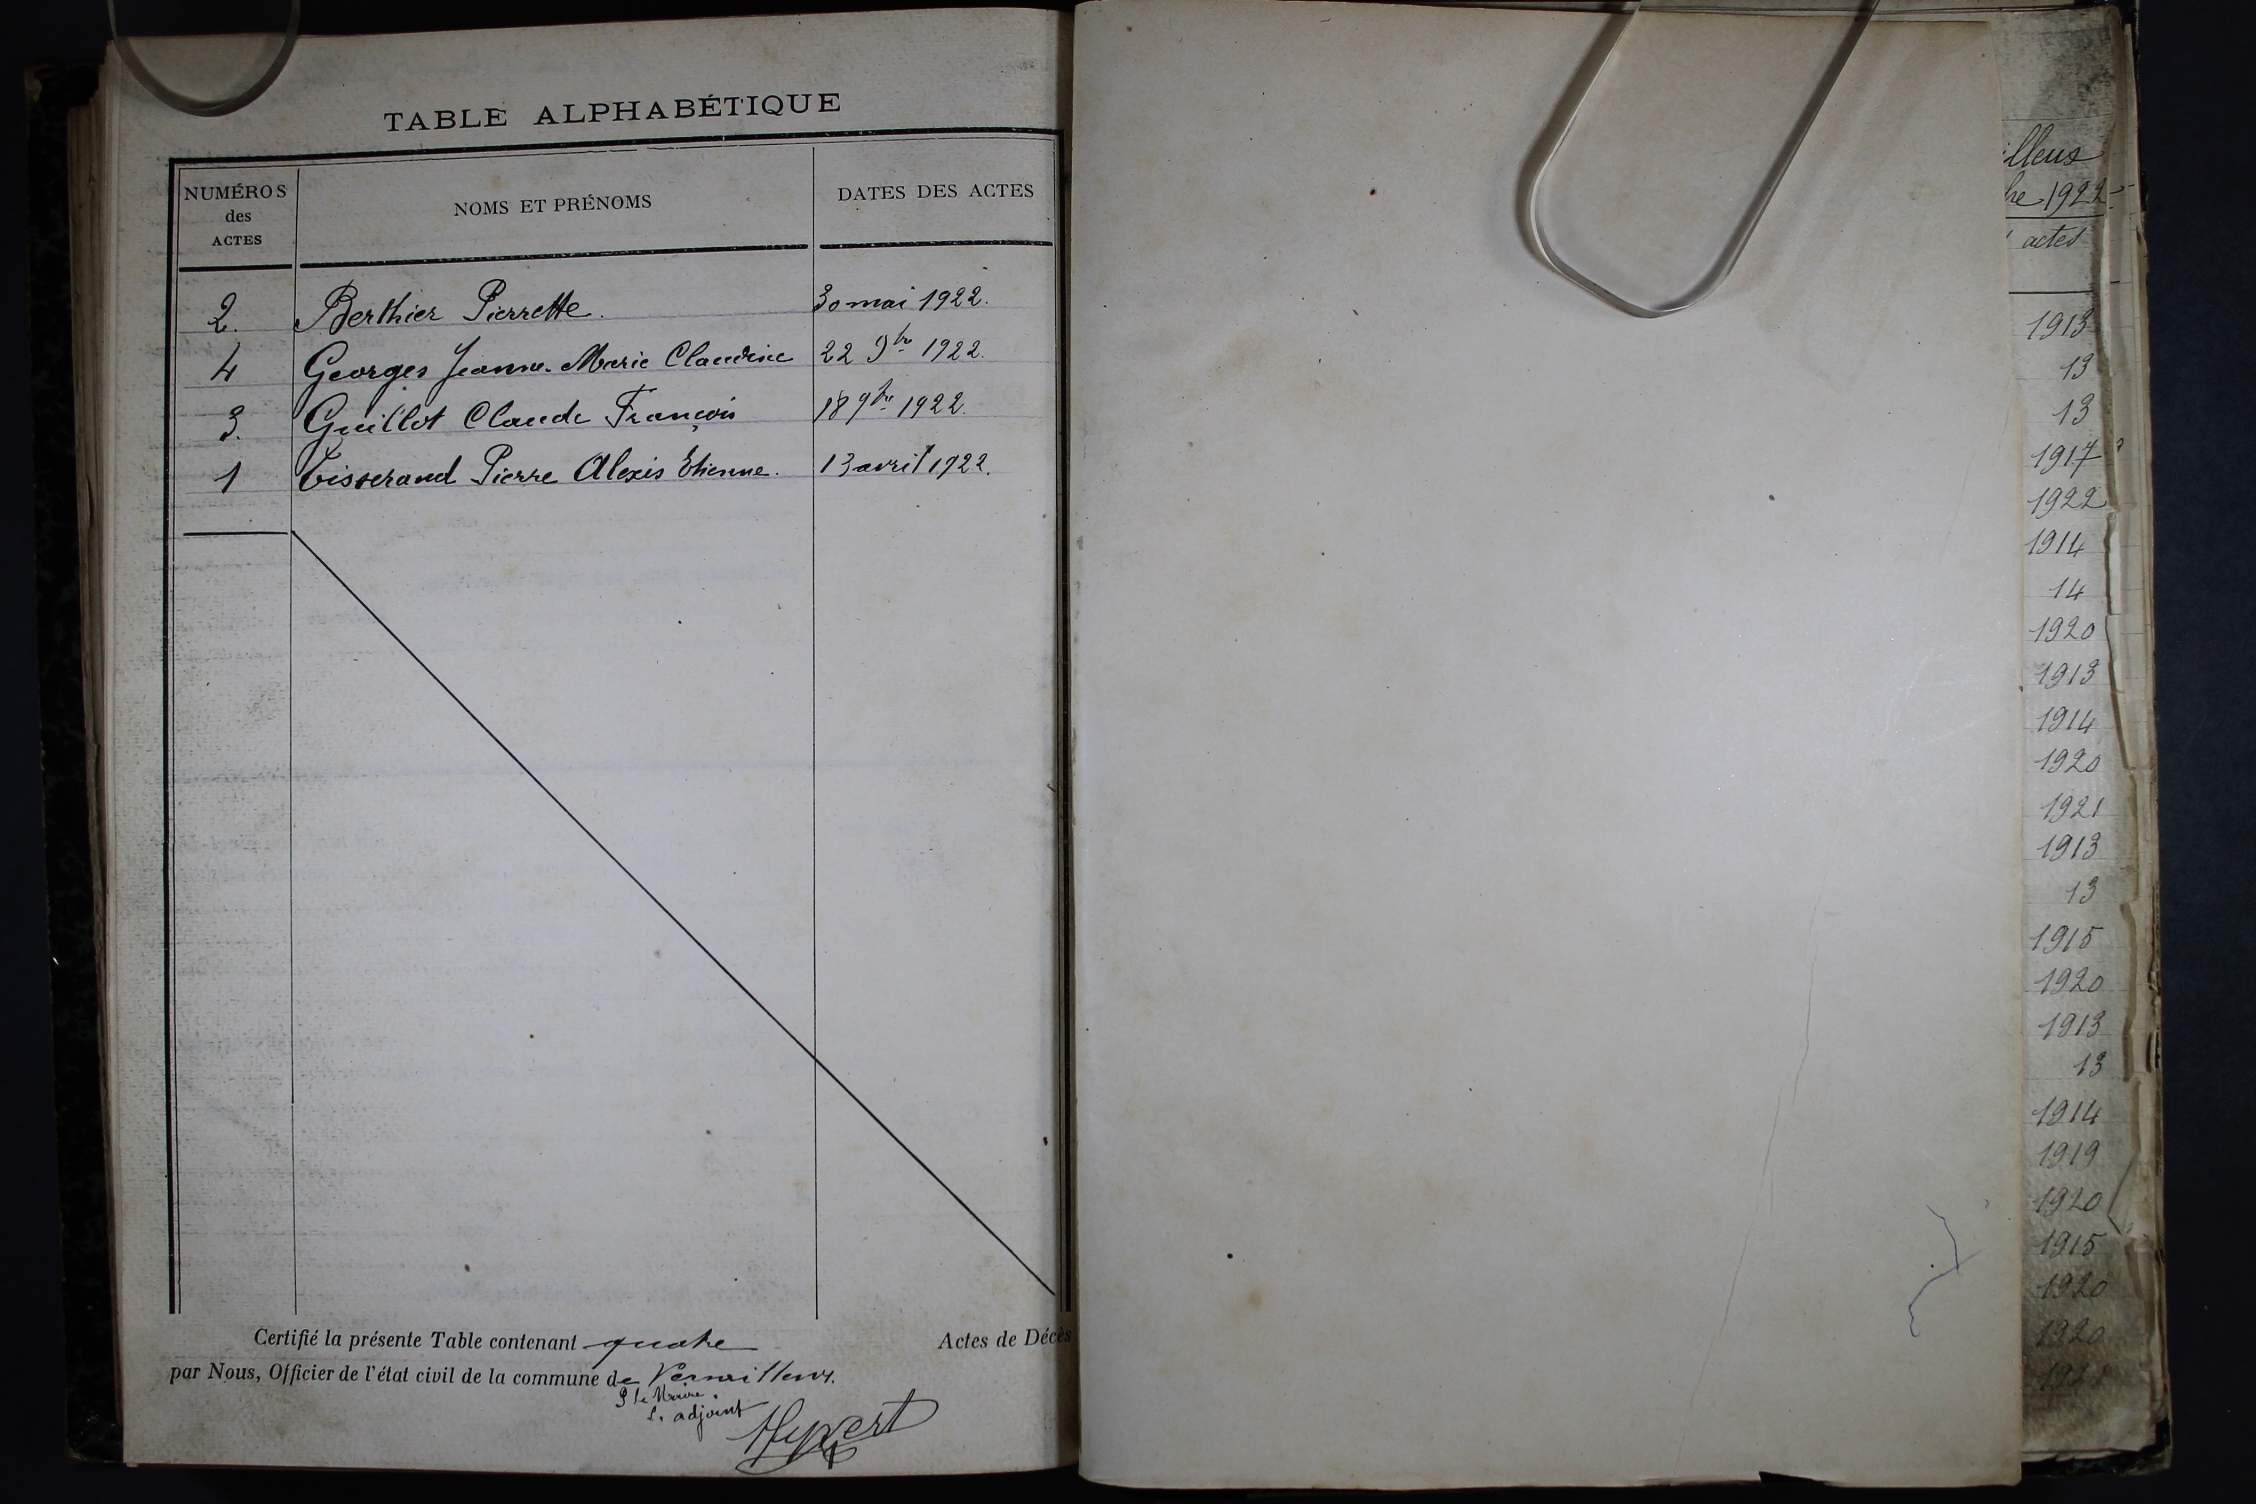 TABLE ALPHABÉTIQUE
NUMÉROS
des
ACTES
NOMS ET PRÉNOMS
DATES DES ACTES
2. Berthier Pierrette. 30 mai 1922.
4 Georges Jeanne-Marie Claudine 22 9bre 1922.
3. Guillot Claude François 18 9bre 1922.
1 Tisserand Pierre Alexis Etienne. 13 avril 1922.
Certifié la présente Table contenant quatre Actes de Décès
par Nous, Officier de l'état civil de la commune de
P le Maire.
L. adjoint
illeus
bre 1922
actes
1913
13
13
1917
1922
1914
14
1920
1913
1914
1920
1921
1913
13
1915
1920
1913
13
1914
1919
1920
1915
1920
1920